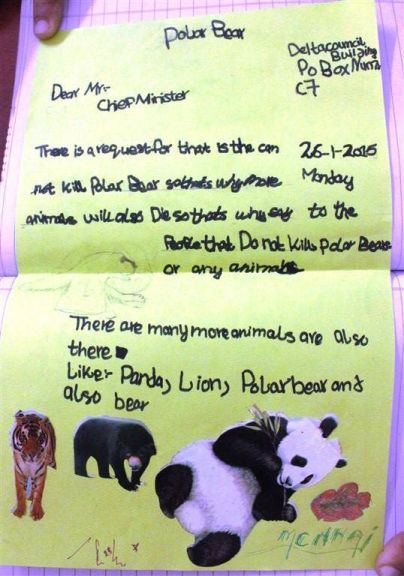 Polar Bear
Delta council
Building
Po Box Num
C7
Dear Mr:-
Chief Minister
26-1-2015
Monday
There is a request for that is the can
not kill Polar Bear so thats why more
animals will also Die so thats why say to the
People that Do not Kills Polar Bears
or any animals
There are many more animals are also
there
Like:- Panda, Lion, Polar bear and
also bear